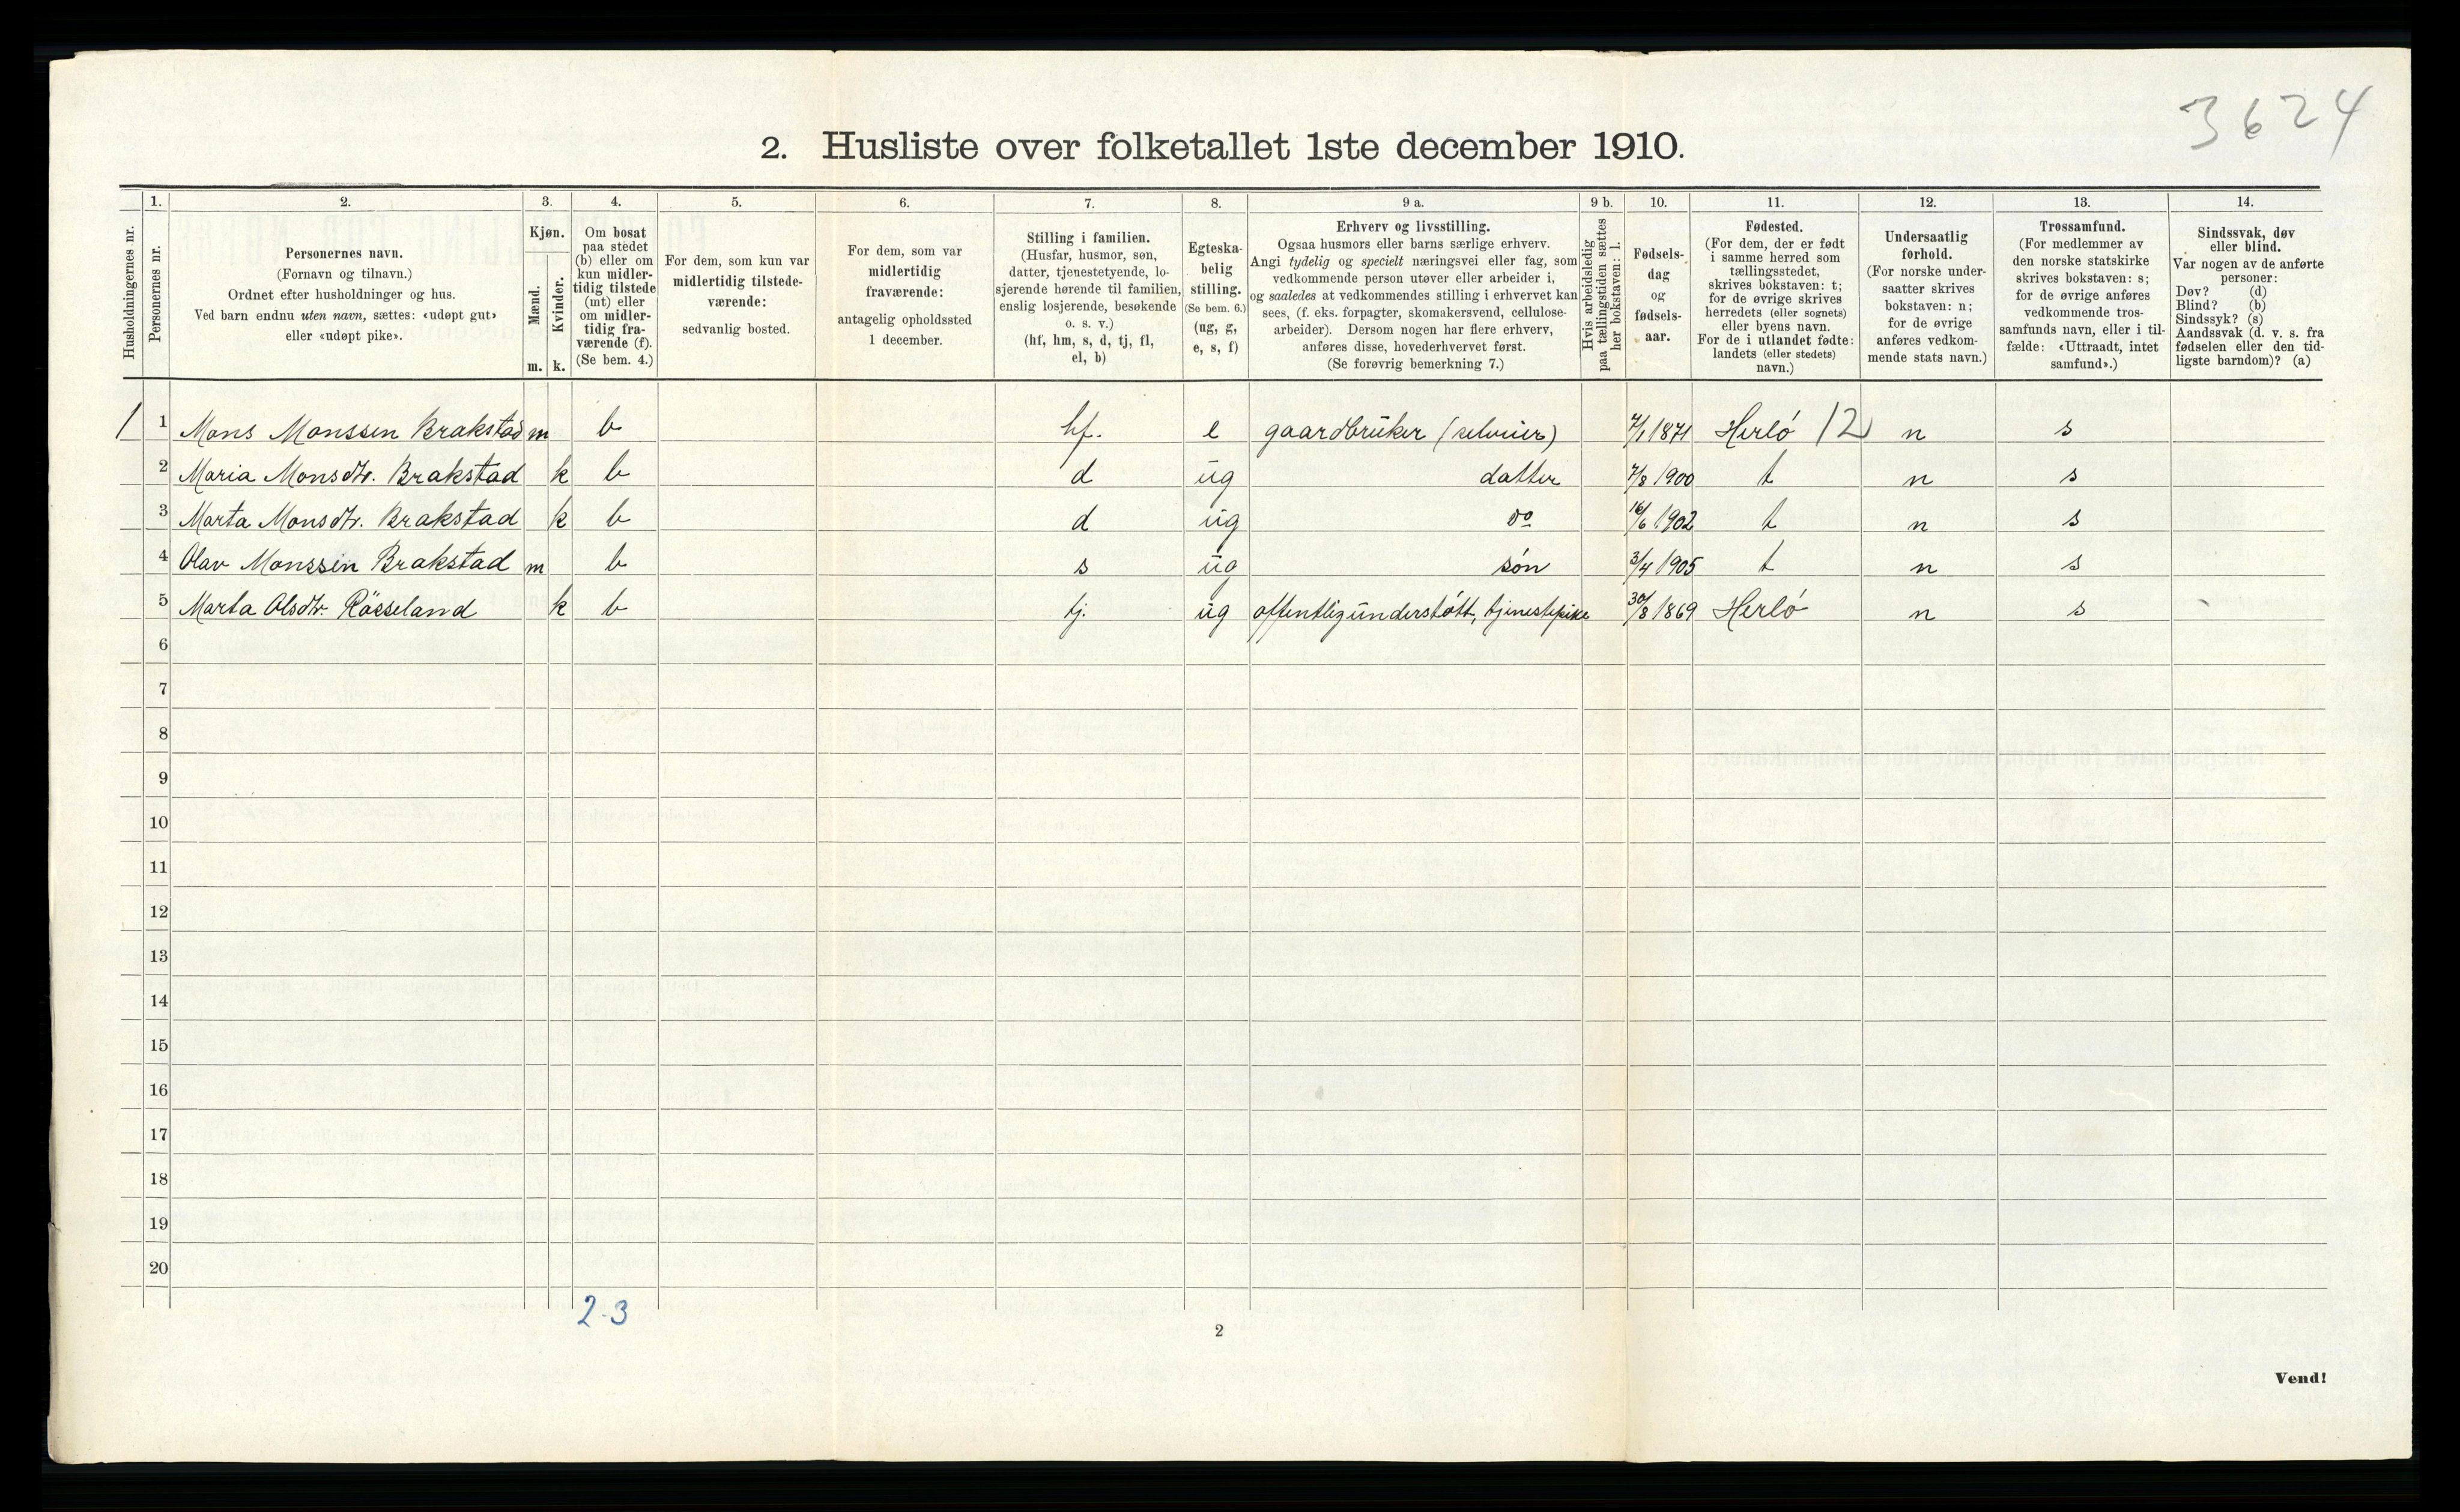 3624
2. Husliste over folketallet 1ste december 1910.
Husholdningernes nr.
1.
Personernes nr.
2.
Personernes navn.
(Fornavn og tilnavn.)
Ordnet efter husholdninger og hus.
Ved barn endnu uten navn, sættes: «udøpt gut»
eller «udøpt pike».
3.
Kjøn.
Mænd.
Kvinder.
m. k.
4.
Om bosat
paa stedet
(b) eller om
kun midler-
tidig tilstede
(mt) eller
om midler-
tidig fra-
værende (f).
(Se bem. 4.)
5.
For dem, som kun var
midlertidig tilstede-
værende:
sedvanlig bosted.
6.
For dem, som var
midlertidig
fraværende:
antagelig opholdssted
1 december.
7.
Stilling i familien.
(Husfar, husmor, søn,
datter, tjenestetyende, lo-
sjerende hørende til familien,
enslig losjerende, besøkende
o. s. v.)
(hf, hm, s, d, tj, fl,
el, b)
8.
Egteska-
belig
stilling.
(Se bem. 6.)
(ug, g,
e, s, f)
9 a.
Erhverv og livsstilling.
Ogsaa husmors eller barns særlige erhverv.
Angi tydelig og specielt næringsvei eller fag, som
vedkommende person utøver eller arbeider i,
og saaledes at vedkommendes stilling i erhvervet kan
sees, (f. eks. forpagter, skomakersvend, cellulose-
arbeider). Dersom nogen har flere erhverv,
anføres disse, hovederhvervet først.
(Se forøvrig bemerkning 7.)
9 b.
Hvis arbeidsledig
paa tællingstiden sættes
her bokstaven: l.
10.
Fødsels-
dag
og
fødsels-
aar.
11.
Fødested.
(For dem, der er født
i samme herred som
tællingsstedet,
skrives bokstaven: t;
for de øvrige skrives
herredets (eller sognets)
eller byens navn.
For de i utlandet fødte:
landets (eller stedets)
navn.)
12.
Undersaatlig
forhold.
(For norske under-
saatter skrives
bokstaven: n;
for de øvrige
anføres vedkom-
mende stats navn.)
13.
Trossamfund.
(For medlemmer av
den norske statskirke
skrives bokstaven: s;
for de øvrige anføres
vedkommende tros-
samfunds navn, eller i til-
fælde: «Uttraadt, intet
samfund».)
14.
Sindssvak, døv
eller blind.
Var nogen av de anførte
personer:
Døv? (d)
Blind? (b)
Sindssyk? (s)
Aandssvak (d. v. s. fra
fødselen eller den tid-
ligste barndom)? (a)
1 1 Mons Monssen Brakstad m b hf. e gaardbruker (selveier) 7/1 1871 Herlö 12 n s
2 Maria Monsdtr. Brakstad k b d ug datter 7/8 1900 t n s
3 Marta Monsdtr. Brakstad k b d ug do 16/6 1902 t n s
4 Olav Monssen Brakstad m b s ug søn 3/4 1905 t n s
5 Marta Olsdtr. Rösseland k b tj. ug offentlig understøtt, tjenestepike 30/8 1869 Herlö n s
6
7
8
9
10
11
12
13
14
15
16
17
18
19
20
2-3
2
Vend!